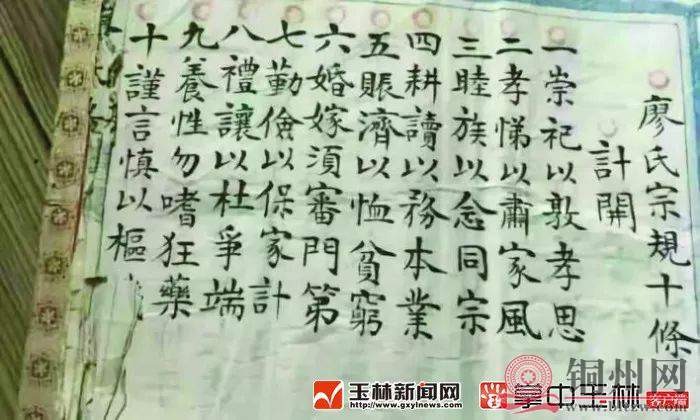 廖氏宗規十條
計開
一崇祀以敦孝思
二孝悌以肅家風
三睦族以念同宗
四耕讀以務本業
五賑濟以恤貧窮
六婚嫁須審門第
七勤儉以保家計
八禮讓以杜爭端
九養性勿嗜狂藥
十謹言慎以樞
玉林新闻网
www.gxylnews.com
掌中玉林
客户端
铜州网